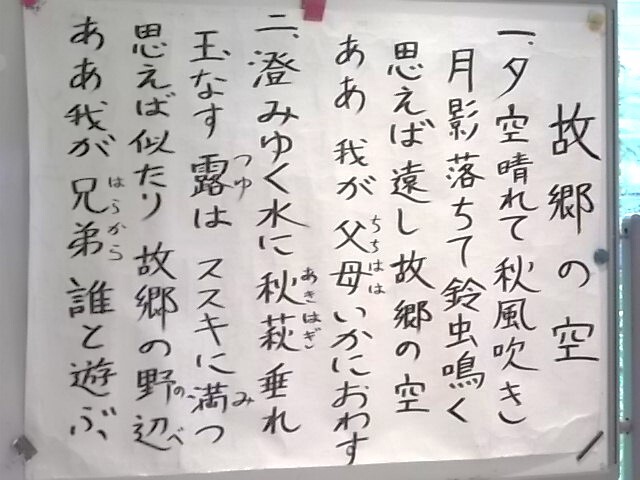 故郷の空
一、夕空晴れて秋風吹き
月影落ちて鈴虫鳴く
思えば遠し故郷の空
ああ 我が父母いかにおわす
ちちはは
二、澄みゆく水に秋萩垂れ
あきはぎ
玉なす露はススキに満つ
つゆ
み
思えば似たり故郷の野辺
のべ
ああ我が兄弟誰と遊ぶ
はらから